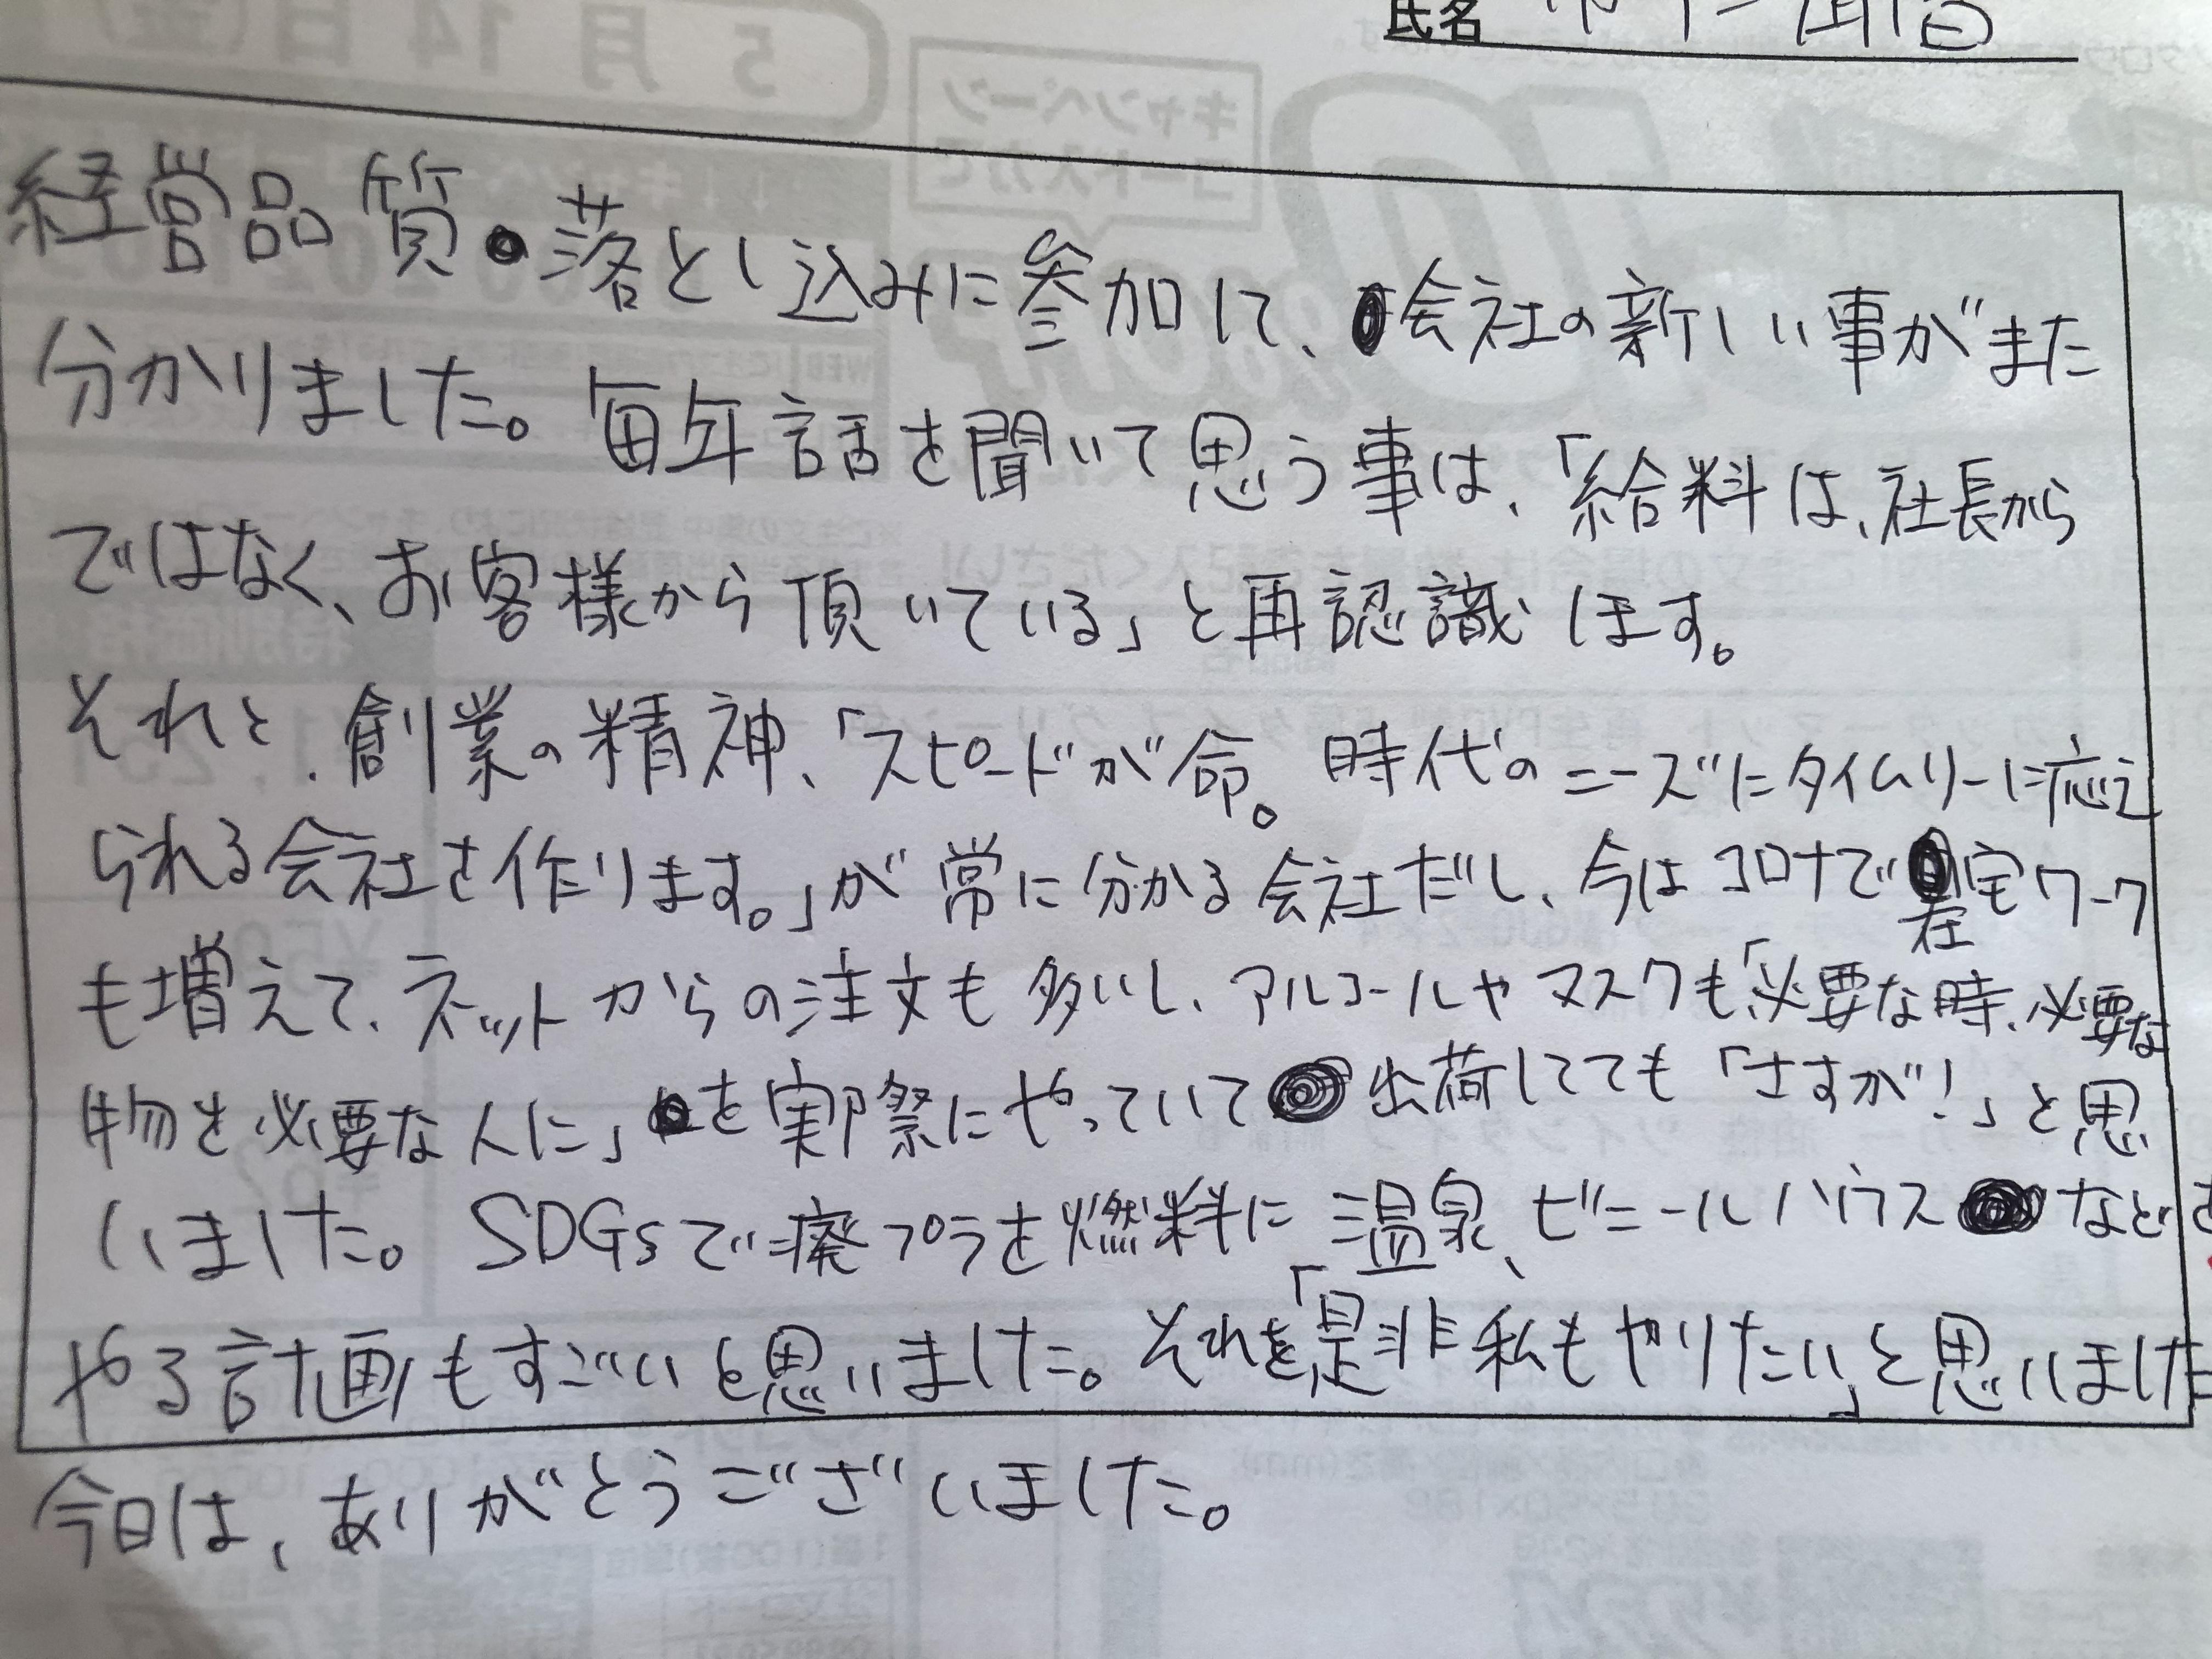 氏名
経営品質落とし込みに参加して、会社の新しい事がまた
分かりました。毎年話を聞いて思う事は、「給料は、社長から
ではなく、お客様から頂いている」と再認識します。
それと、創業の精神、「スピードが命。時代のニーズにタイムリーに応え
られる会社を作ります。」が常に分かる会社だし、今はコロナで在宅ワーク
も増えて、ネットからの注文も多いし、アルコールやマスクも「必要な時、必要な
物を必要な人に」を実際にやっていて出荷してても「さすが!」と思
いました。SDGsで廃プラを燃料に温泉、ビニールハウスなどを
やる計画もすごいと思いました。それを「是非私もやりたい」と思いました
今日は、ありがとうございました。